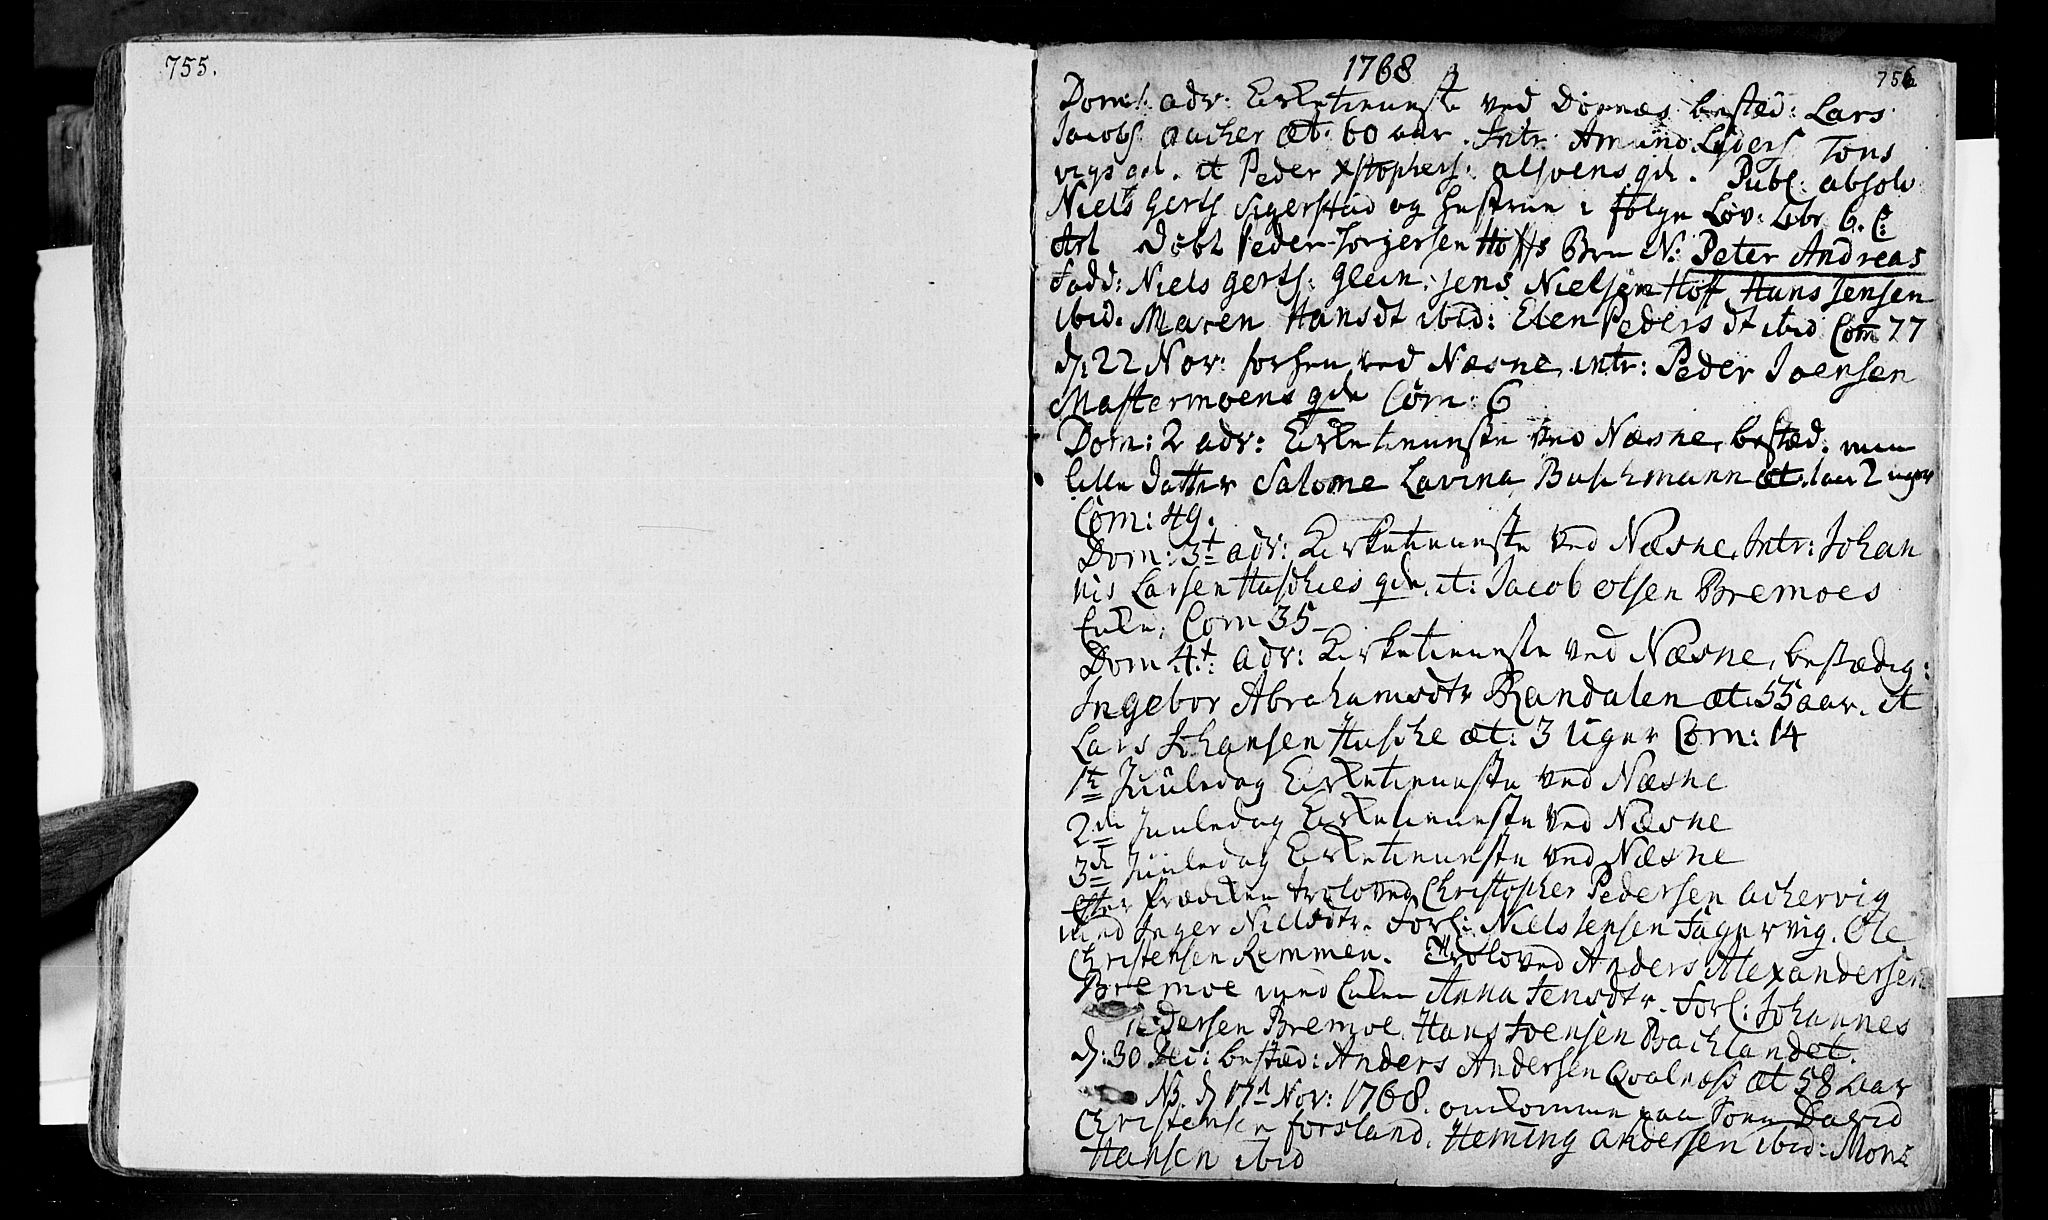 755.
1768
756
Dom: 1. adv: Kirketieneste ved Dönnæs bested: Lars
Jacobs. Aacher æt: 60 aar. Intr: Amund Lyders Tons
vigs qd. it Peder Xstophers: alsvens qde. Publ: absolv
Niels Gerts Sigerstad og hustrue i følge Lov: Libr 6. C:
Art Döbt Peder Torgersen Hoffs Brn N: Peter Andreas
Fadd: Niels Gerts: Glein. Jens Nielsen Hoff Hans Jensen
ibid. Maren Hansdt ibid: Elen Pedersdt ibid Com 77
d: 22 Nov: forhen ved Næsne intr: Peder Joensen
Mastermoens qde Com: 6
Dom: 2 adv: Kirketieneste ved Næsne, bestæd: min
lille Datter Salome Lavina Buschmann æt. 1 aar 2 uger
Com: 49.
Dom: 3t adv: Kirketieneste ved Næsne, Intr: Johan
nis Larsen Husches qde. it: Jacob Olsen Bremoes
Enke, Com 35
Dom 4t: adv: Kirketieneste ved Næsne, bestædig:
Ingebor Abrahamsdtr Randalen æt: 55 aar. it
Lars Johansen Husche æt: 3 Uger Com: 14
1te Juuledag Kirketieneste ved Næsne
2de Juuledag Kirketieneste ved Næsne
3de Juuledag Kirketieneste ved Næsne
efter Prædiken troloved Christopher Pedersen Achervig
med Inger Nielsdtr. Forl: Niels Jensen Fagervig. Ole
Christensen Remmen. Troloved Anders Alexandersen
Bremoe med Enken Anna Jensdtr. Forl: Johannes
Pedersen Bremoe. Hans Joensen Bachlandet.
d: 30 Dec: bestæd: Anders Andersen Qvalnæss æt 58 aar
NB. d 17d Nov: 1768. omkomne paa Søen David
Christensen Forsland. Heming Andersen ibid: Mons
Hansen ibid